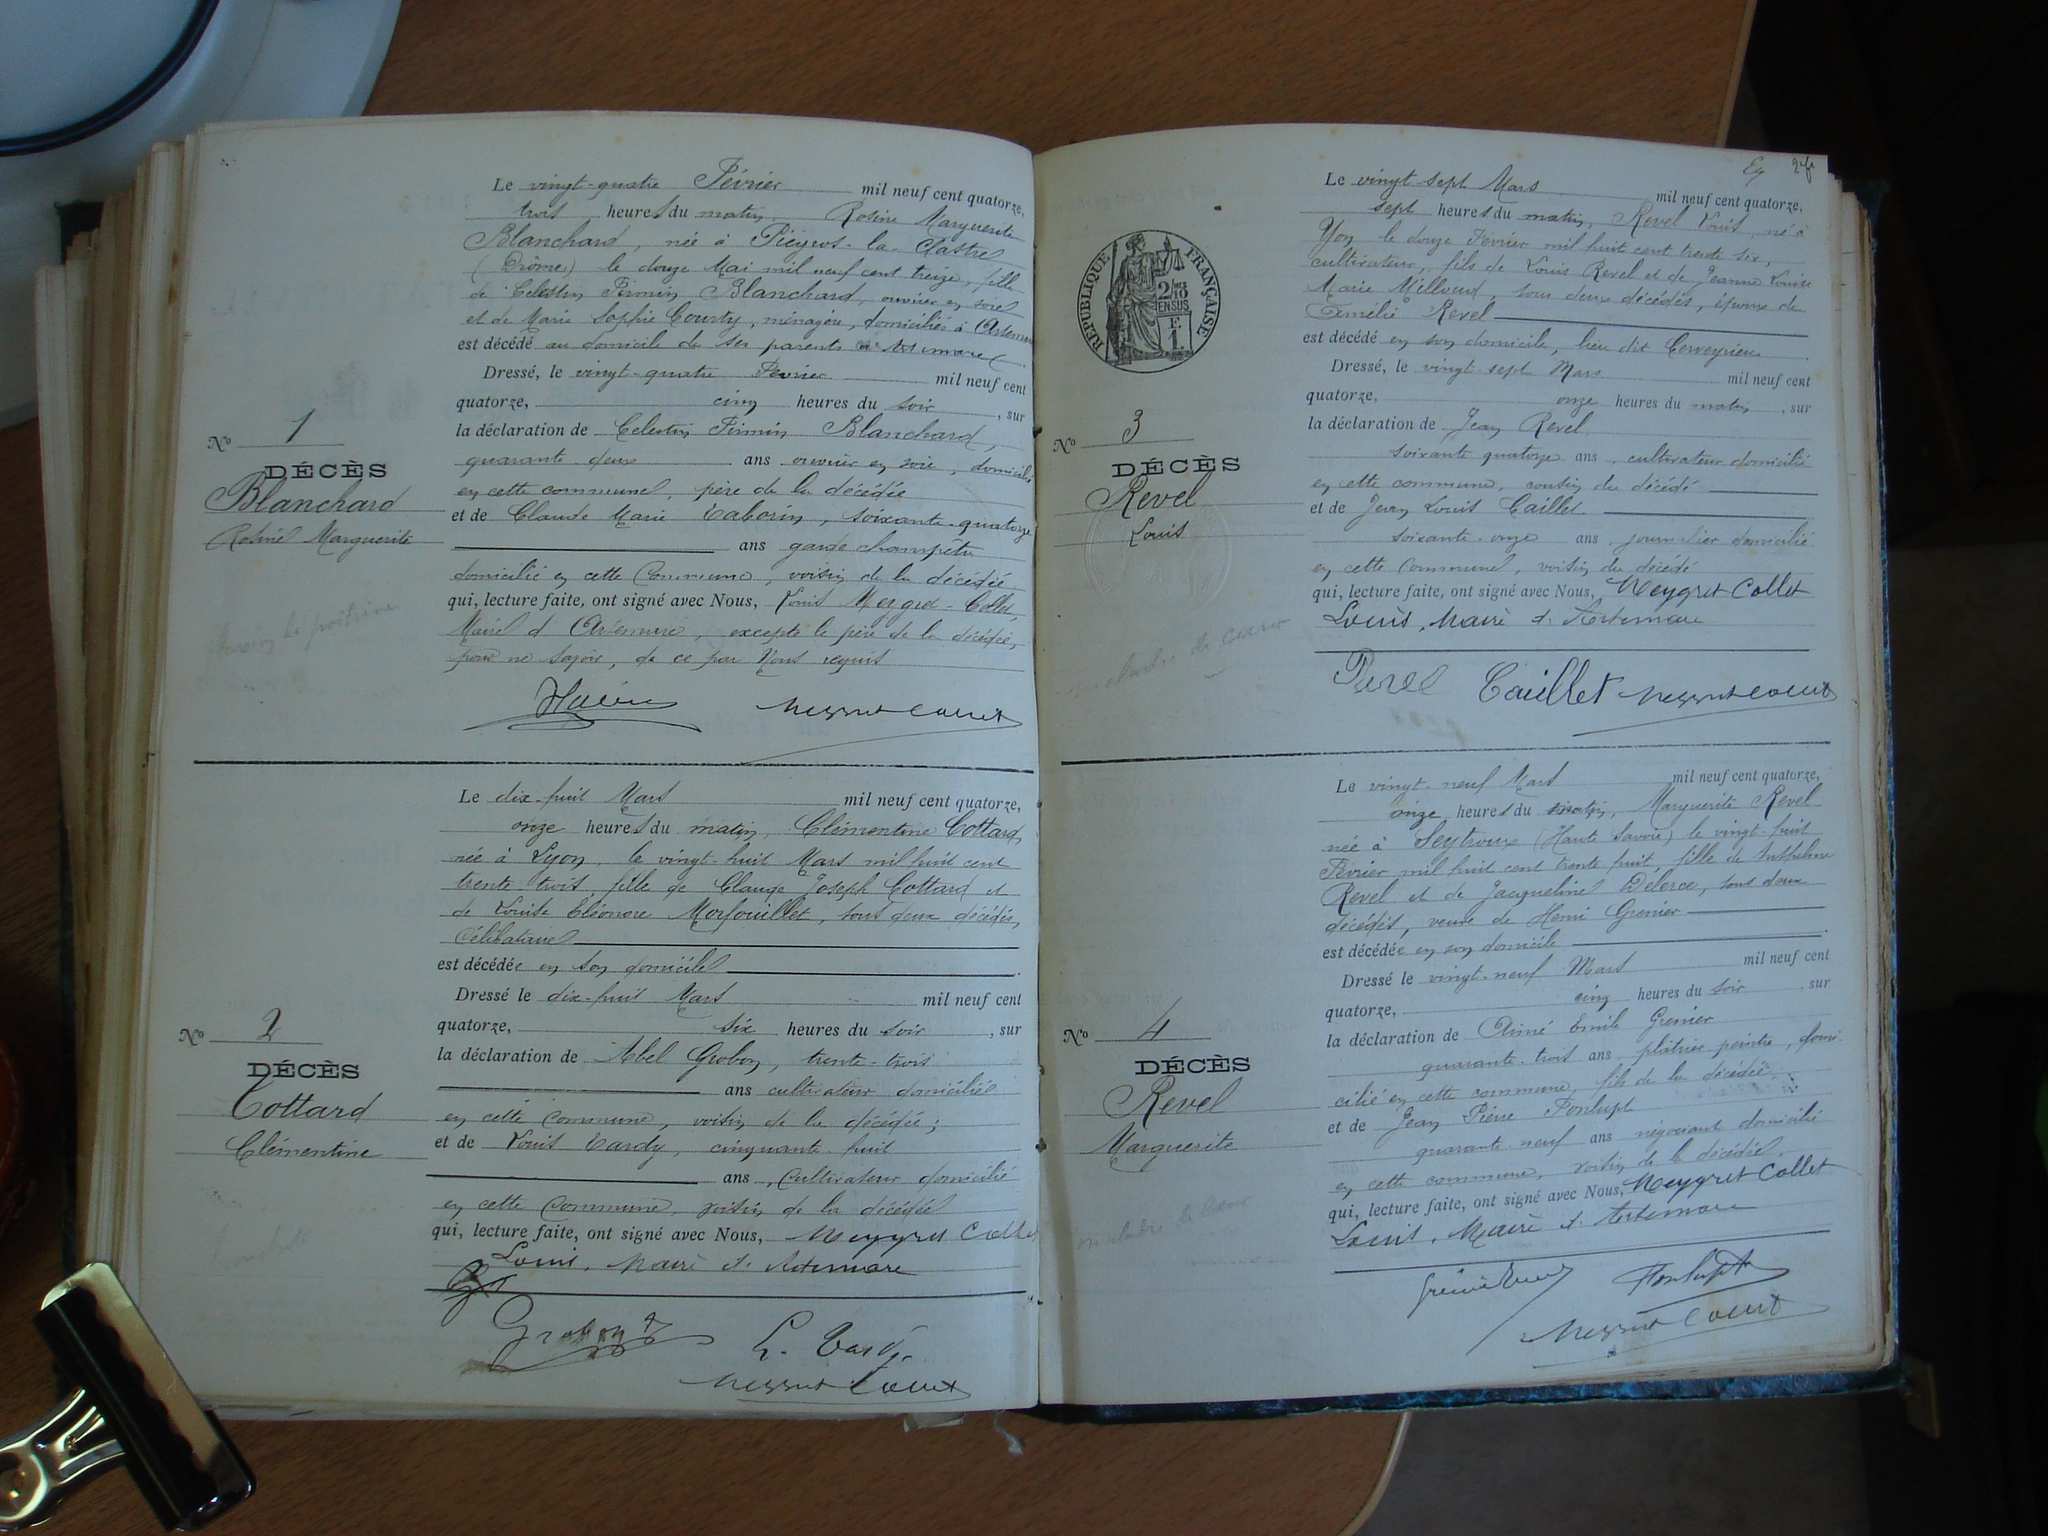 Le vingt-quatre Février mil neuf cent quatorze,
trois heures du matin, Rosine Marguerite
Blanchard, née à Piégros-la-Clastre
(Drôme) le douze Mai mil neuf cent treize, fille
de Célestin Firmin Blanchard, ouvrier en soie
et de Marie Sophie Courty, ménagère, domiciliés à Artemare
est décédé au domicile de ses parents à Artemare
Dressé, le vingt-quatre Février mil neuf cent
quatorze, cinq heures du soir, sur
la déclaration de Celestin Firmin Blanchard,
quarante deux ans ouvrier en soie, domicilié
en cette commune, père de la décédée
et de Claude Marie Taborin, soixante-quatorze
ans garde champêtre
domicilié en cette Commune, voisin de la décédée
qui, lecture faite, ont signé avec Nous, Louis Meygret-Collet,
Maire d'Artemare, excepté le père de la décédée,
pour ne savoir, de ce par Nous requis
No 1
DÉCÈS
Blanchard
Rosine Marguerite
Le dix-huit Mars mil neuf cent quatorze,
onze heures du matin, Clémentine Cottard,
née à Lyon, le vingt-huit Mars mil huit cent
trente-trois, fille de Claude Joseph Cottard et
de Louise Eléonore Morfouillet, tous deux décédés,
Célibataire
est décédée en son domicile
Dressé le dix-huit Mars mil neuf cent
quatorze, six heures du soir, sur
la déclaration de Abel Grobon, trente-trois
ans cultivateur domicilié
en cette commune, voisin de la décédée;
et de Louis Tardy, cinquante huit
ans, cultivateur domicilié
en cette commune, voisin de la décédée
qui, lecture faite, ont signé avec Nous, Meygret Collet
Louis, Maire d'Artemare
Grobon
L. Tardy
Meygret Collet
No 2
DÉCÈS
Cottard
Clémentine
2 f
RÉPUBLIQUE FRANÇAISE
2/10
EN SUS
F.
1.
Le vingt-sept Mars mil neuf cent quatorze,
sept heures du matin, Revel Louis, né à
Yon le douze Février mil huit cent trente six,
cultivateur, fils de Louis Revel et de Jeanne Louise
Marie tous deux décédés, époux de
Revel
est décédé en son domicile, lieu dit Cerveyrieu
Dressé, le vingt-sept Mars mil neuf cent
quatorze, onze heures du matin, sur
la déclaration de Jean Revel
soixante quatorze ans, cultivateur domicilié
en cette commune, cousin du décédé
et de Jean Louis Caillet
soixante-onze ans, journalier domicilié
en cette commune, voisin du décédé
qui, lecture faite, ont signé avec Nous, Meygret Collet
Louis, Maire d'Artemare
Revel Caillet Meygret Collet
No 3
DÉCÈS
Revel
Louis
Le vingt-neuf Mars mil neuf cent quatorze,
onze heures du matin, Marguerite Revel
née à Seytroux (Haute Savoie) le vingt-huit
Février mil huit cent trente huit, fille de Anthelme
Revel et de Jacqueline Délerce, tous deux
décédés, veuve de Henri Grenier
est décédée en son domicile
Dressé le vingt-neuf Mars mil neuf cent
quatorze, cinq heures du soir sur
la déclaration de Aimé Emile Grenier
quarante-trois ans plâtrier peintre, domi-
cilié en cette commune, fils de la décédée
et de Jean Pierre Fonlupt
quarante-neuf ans négociant domicilié
en cette commune, voisin de la décédée,
qui, lecture faite, ont signé avec Nous, Meygret Collet
Louis, Maire d'Artemare
Fonlupt
Meygret Collet
No 4
DÉCÈS
Revel
Marguerite